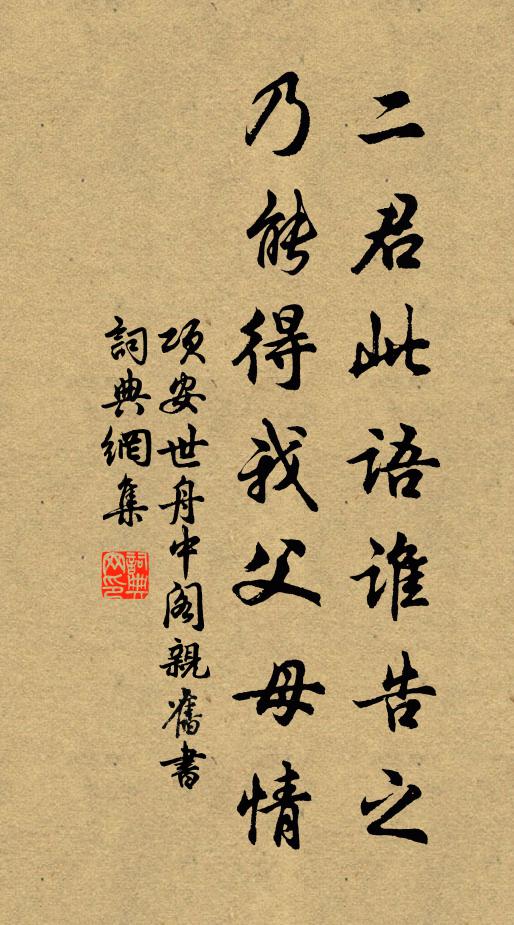 二君此语谁告之
乃能得我父母情
项安世舟中阁親舊書
詞典網集
詞典网印